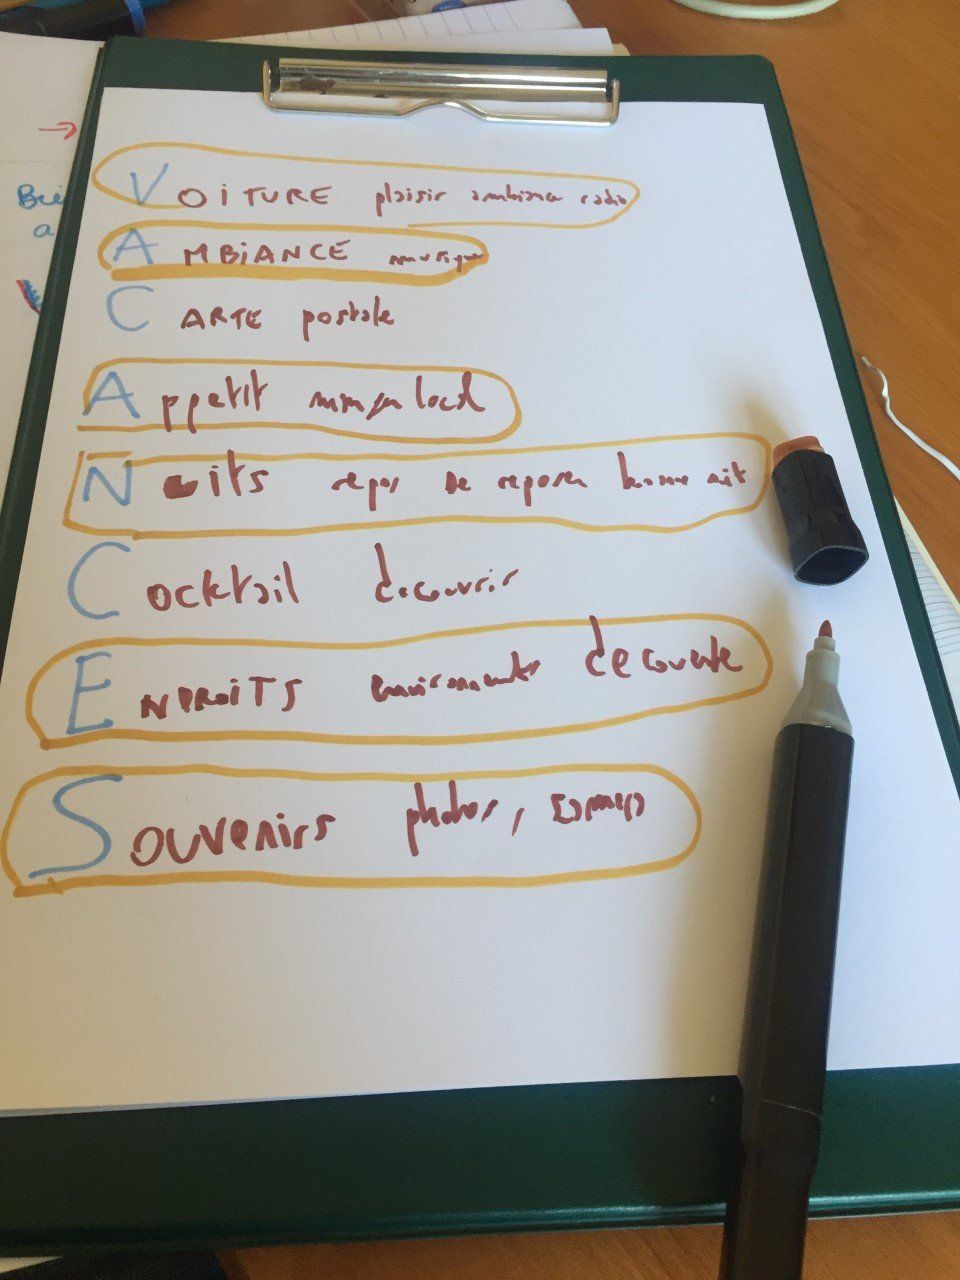 Bie
a
VOiTURE plaisir ambiance radio
AMBiANCE musique
CARTE postale
Appetit manger local
Nuits repos se reposer bonne nuit
Cocktail decouvrir
ENDROiTS environnements decouverte
SOUVENirS photos,